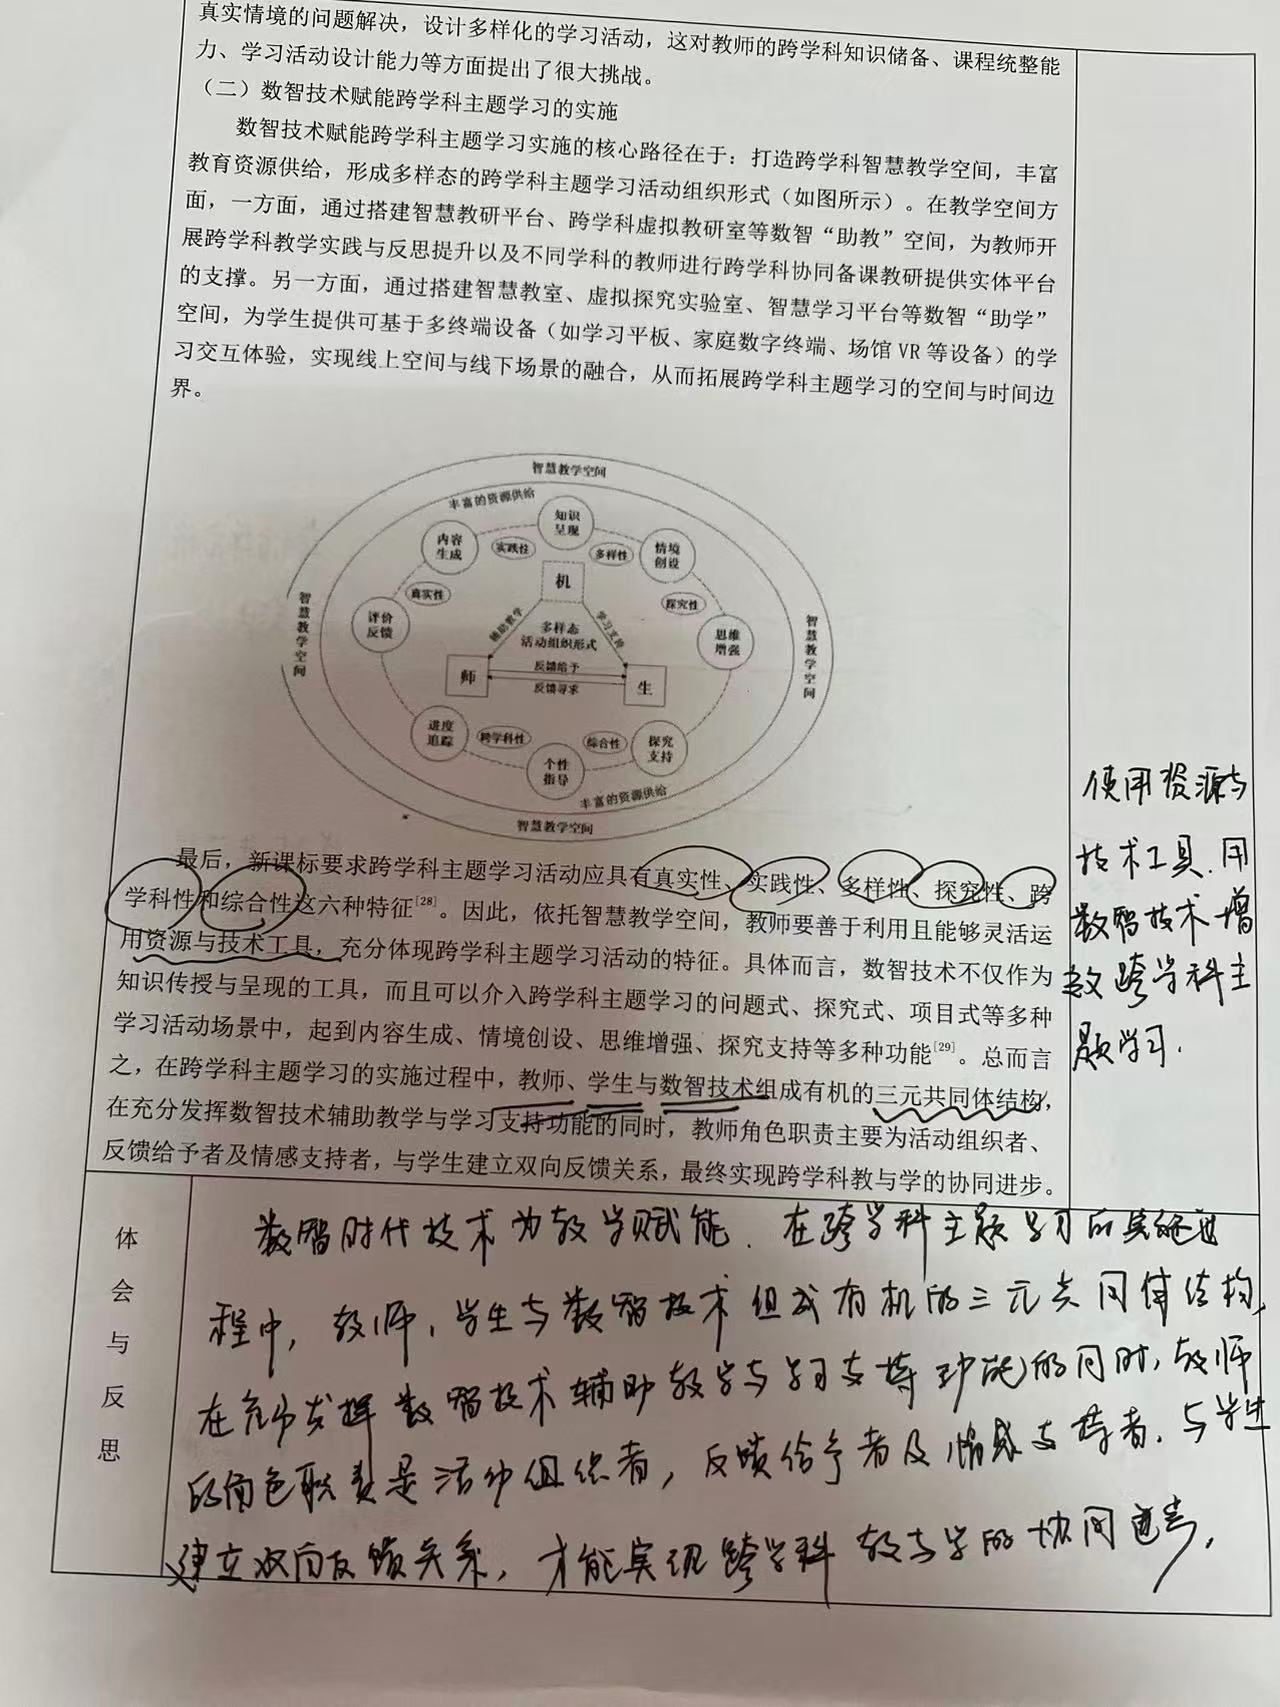 真实情境的问题解决，设计多样化的学习活动，这对教师的跨学科知识储备、课程统整能
力、学习活动设计能力等方面提出了很大挑战。
（二）数智技术赋能跨学科主题学习的实施
数智技术赋能跨学科主题学习实施的核心路径在于：打造跨学科智慧教学空间，丰富
教育资源供给，形成多样态的跨学科主题学习活动组织形式（如图所示）。在教学空间方
面，一方面，通过搭建智慧教研平台、跨学科虚拟教研室等数智“助教”空间，为教师开
展跨学科教学实践与反思提升以及不同学科的教师进行跨学科协同备课教研提供实体平台
的支撑。另一方面，通过搭建智慧教室、虚拟探究实验室、智慧学习平台等数智“助学”
空间，为学生提供可基于多终端设备（如学习平板、家庭数字终端、场馆 VR 等设备）的学
习交互体验，实现线上空间与线下场景的融合，从而拓展跨学科主题学习的空间与时间边
界。
智慧教学空间
丰富的资源供给
知识
呈现
内容
生成
实践性
多样性
情境
创设
真实性
机
探究性
智慧教学空间
评价
反馈
辅助教学
多样态
活动组织形式
学习支持
思维
增强
智慧教学空间
师
反馈给予
反馈寻求
生
进度
追踪
跨学科性
综合性
探究
支持
个性
指导
丰富的资源供给
智慧教学空间
最后，新课标要求跨学科主题学习活动应具有真实性、实践性、多样性、探究性、跨
学科性和综合性这六种特征[28]。因此，依托智慧教学空间，教师要善于利用且能够灵活运
用资源与技术工具，充分体现跨学科主题学习活动的特征。具体而言，数智技术不仅作为
知识传授与呈现的工具，而且可以介入跨学科主题学习的问题式、探究式、项目式等多种
学习活动场景中，起到内容生成、情境创设、思维增强、探究支持等多种功能[29]。总而言
之，在跨学科主题学习的实施过程中，教师、学生与数智技术组成有机的三元共同体结构，
在充分发挥数智技术辅助教学与学习支持功能的同时，教师角色职责主要为活动组织者、
反馈给予者及情感支持者，与学生建立双向反馈关系，最终实现跨学科教与学的协同进步。
使用资源与
技术工具.用
数智技术增
效跨学科主
题学习.
体会与反思
数智时代技术为教学赋能.在跨学科主题学习的实施过
程中，教师，学生与数智技术组成有机的三元共同体结构，
在充分发挥数智技术辅助教学与学习支持功能的同时，教师
的角色职责是活动组织者，反馈给予者及情感支持者.与学生
建立双向反馈关系，才能实现跨学科教与学的协同进步，